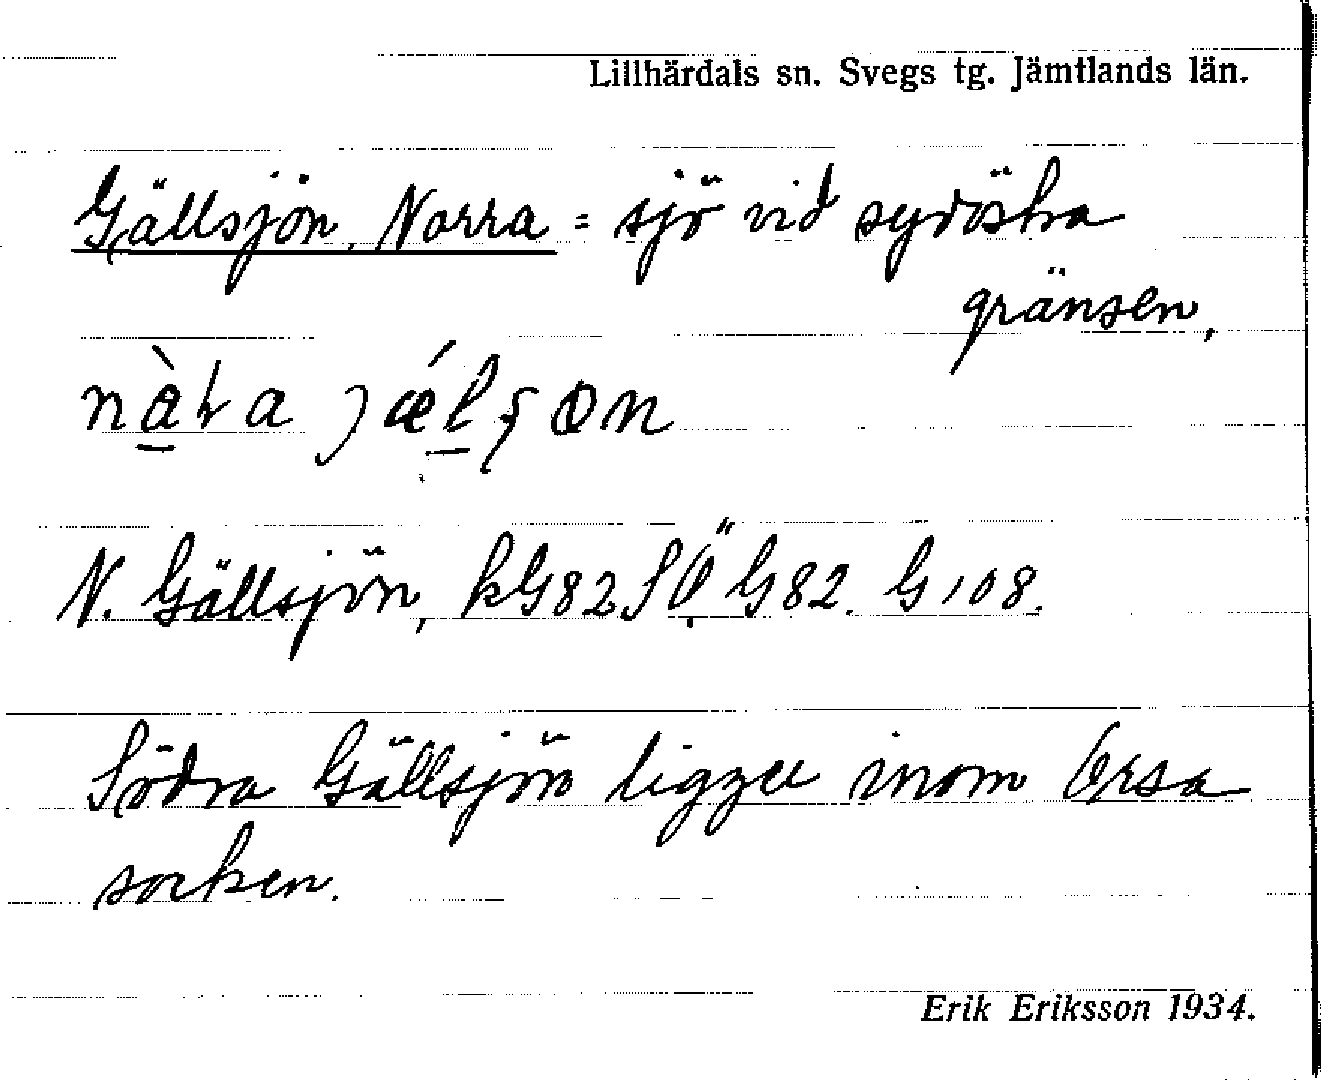 Lillhärdals sn. Svegs tg. Jämtlands län.
Gällsjön, Norra = sjö vid sydöstra
gränsen,
N. Gällsjön, kG82SÖ G82. G108.
Södra Gällsjön ligger inom Orsa
socken.
Erik Eriksson 1934.